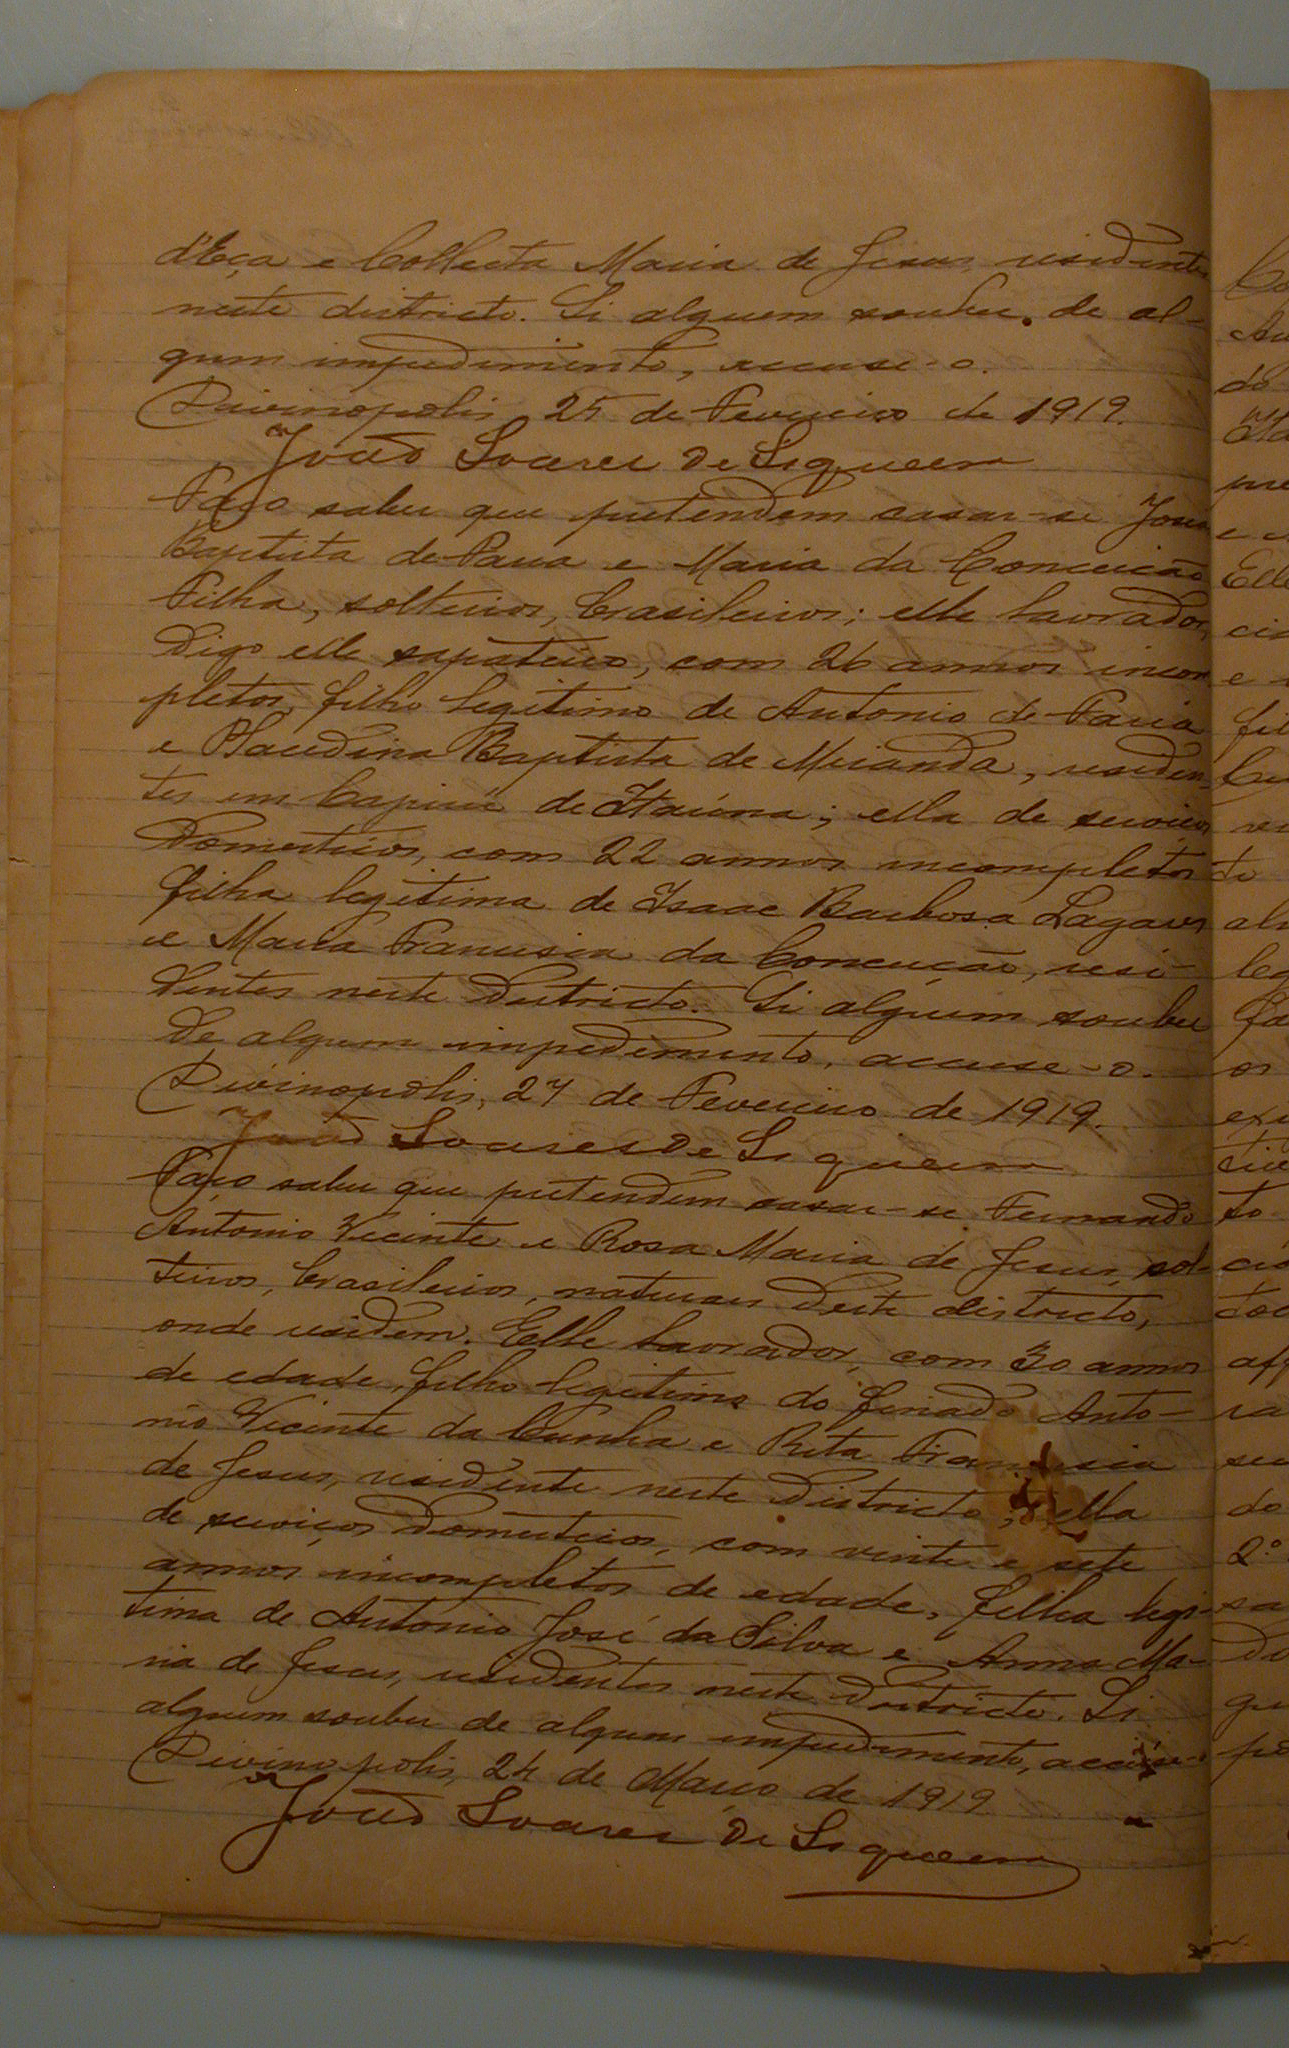 d'Eça e Collecta Maria de Jesus, residentes
neste districto. Si alguem souber de al-
gum impedimento, accuse-o.
Divinopolis, 25 de Fevereiro de 1919.
João Soares de Siqueira
Faço saber que pretendem casar-se
Baptista de Faria e Maria da Conceição
Filha, solteiros, brasileiros; elle lavrador,
digo elle sapateiro, com 26 annos incom
pletos, filho legitimo de Antonio de Faria
e Placedina Baptista de Miranda, residen-
tes em Cajurú de Itaúna; ella de serviços
domesticos, com 22 annos incompletos
filha legitima de Isaac Barbosa Lagares
e Maria Francisca da Conceição, resi-
dentes neste districto. Si alguem souber
de algum impedimento, accuse-o.
Divinopolis, 27 de Fevereiro de 1919.
João Soares de Siqueira
Faço saber que pretendem casar-se Fernando
Antonio Vicente e Rosa Maria de Jesus, sol-
teiros, brasileiros, naturaes deste districto,
onde residem. Elle lavrador, com 30 annos
de edade, filho legitimo do finado Anto-
nio Vicente da Cunha e Rita Francisca
de Jesus, residente neste districto; ella
de serviços domesticos, com vinte e sete
annos incompletos de edade, filha legi-
tima de Antonio José da Silva e Anna Ma-
ria de Jesus, residentes neste districto. Si
alguem souber de algum impedimento, accuse-o
Divinopolis, 24 de Março de 1919
João Soares de Siqueira